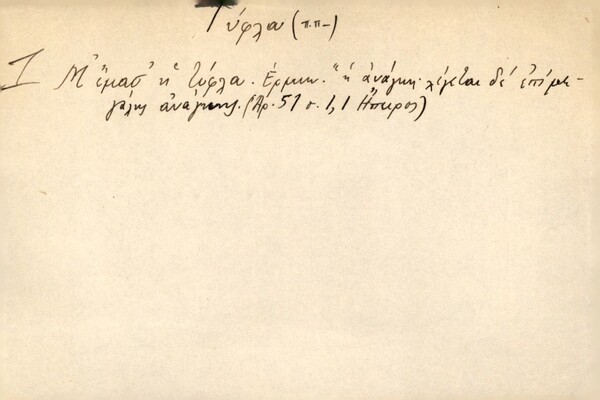 Τύφλα (π.π-)
1 Μ' ἔμασ' ἡ τύφλα. Ἑρμην. "ἡ ἀνάγκη· λέγεται δὲ ἐπὶ με-
γάλης ἀνάγκης. (Ἀρ. 51 σ. 1, 1 Ἤπειρος)